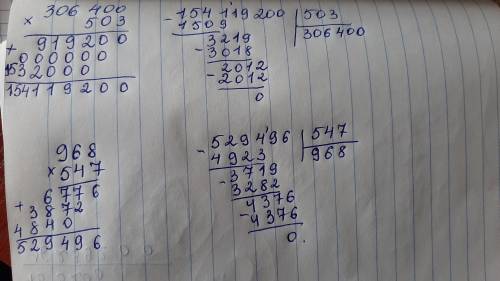 306 400
× 503
919200
+ 000000
1532000
154119200
- 154 119 200 | 503
1509 | 306400
3219
- 3018
2012
- 2012
0
968
× 547
6776
+ 3872
4840
529496.
- 529496 | 547
4923 | 968
- 3719
3282
4376
- 4376
0.